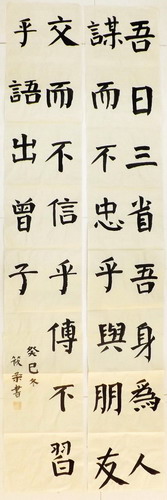 吾日三省吾身為人
謀而不忠乎與朋友
交而不信乎傳不習
乎語出曾子
癸巳冬